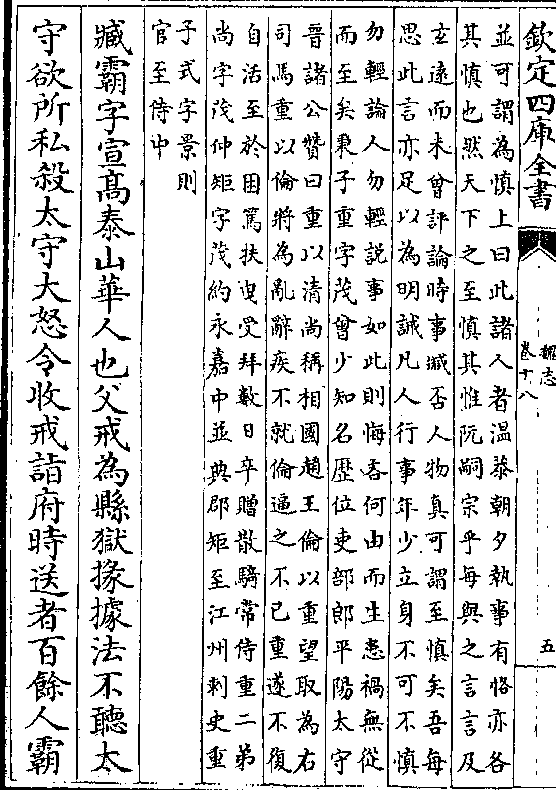 欽定四庫全書
魏志
卷十八
五
並可謂為慎上曰此諸人者溫恭朝夕執事有恪亦各
其慎也然天下之至慎其惟阮嗣宗乎每與之言言及
玄遠而未曾評論時事臧否人物真可謂至慎矣吾每
思此言亦足以為明誡凡人行事年少立身不可不慎
勿輕論人勿輕說事如此則悔吝何由而生患禍無從
而至矣秉子重字茂曾少知名歴位吏部郎平陽太守
晉諸公贊曰重以清尚稱相國趙王倫以重望取為右
司馬重以倫將為亂辭疾不就倫逼之不已重遂不復
自活至於困篤扶曳受拜數日卒贈散騎常侍重二弟
尚字茂仲矩字茂約永嘉中並典郡矩至江州刺史重
子式字景則
官至侍中
臧霸字宣髙泰山華人也父戒為縣獄掾據法不聽太
守欲所私殺太守大怒令收戒詣府時送者百餘人霸